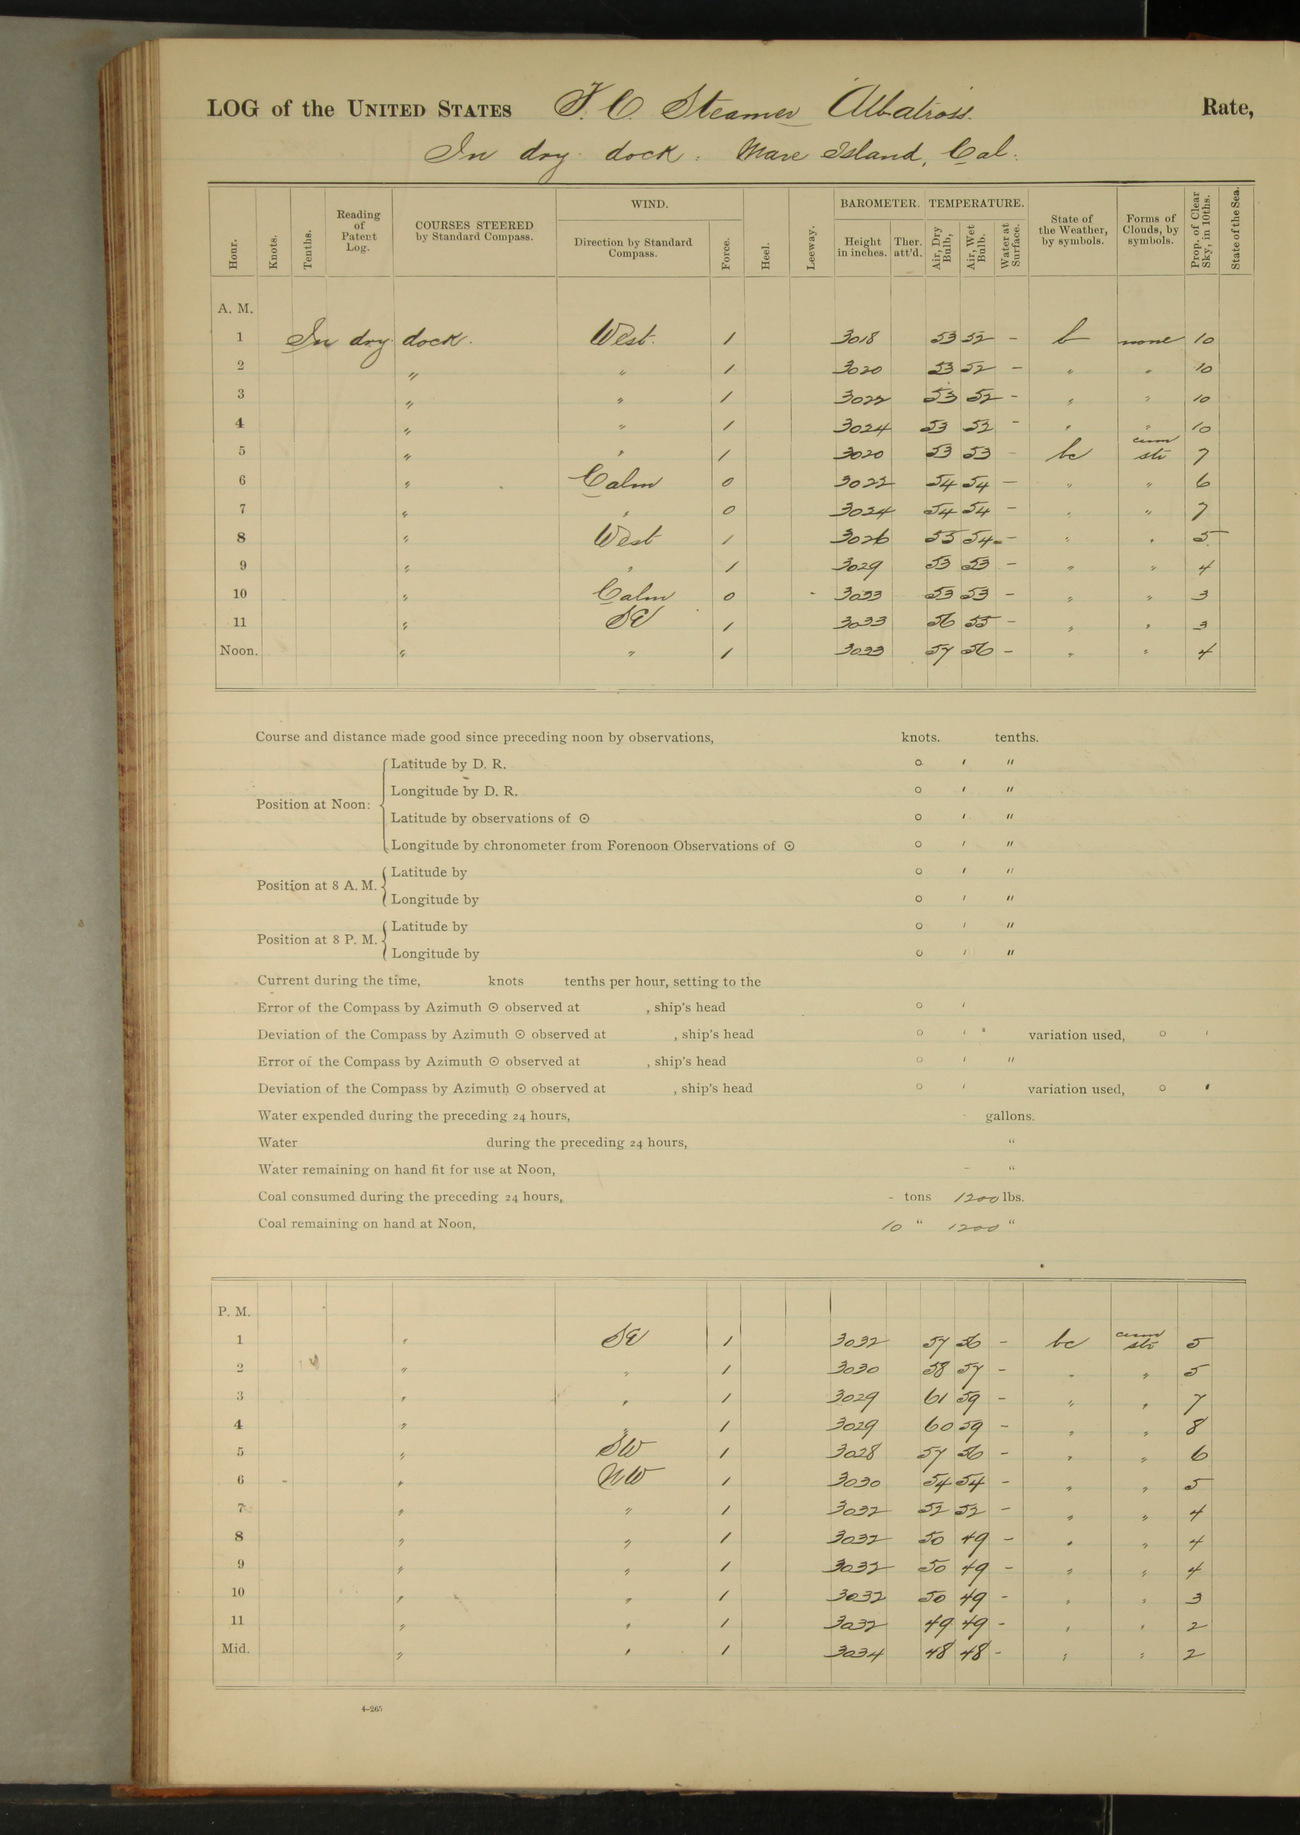 LOG of the UNITED STATES F. C. Steamer Albatross. Rate,
In dry dock. Mare Island, Cal.
Hour. Knots. Tenths. Reading of Patent Log. COURSES STEERED by Standard Compass. WIND. Direction by Standard Compass. Force. Heel. Leeway. BAROMETER. Height in inches. Ther. att'd. TEMPERATURE. Air, Dry Bulb, Air, Wet Bulb. Water at Surface. State of the Weather, by symbols. Forms of Clouds, by symbols. Prop. of Clear Sky, in 10ths. State of the Sea.
A. M.
1 In dry dock. West. 1 3018 53 52 - b none 10
2 " " 1 3020 53 52 - " " 10
3 " " 1 3022 53 52 - " " 10
4 " " 1 3024 53 52 - " " 10
5 " " 1 3020 53 53 - bc cum str 7
6 " Calm 0 3022 54 54 - " " 6
7 " " 0 3024 54 54 - " " 7
8 " West 1 3026 55 54 - " " 5
9 " " 1 3029 53 53 - " " 4
10 " Calm 0 3033 53 53 - " " 3
11 " SE 1 3033 56 55 - " " 3
Noon. " " 1 3033 57 56 - " " 4
Course and distance made good since preceding noon by observations, knots. tenths.
Position at Noon:
Latitude by D. R. ° ′ ″
Longitude by D. R. ° ′ ″
Latitude by observations of ⊙ ° ′ ″
Longitude by chronometer from Forenoon Observations of ⊙ ° ′ ″
Position at 8 A. M.
Latitude by ° ′ ″
Longitude by ° ′ ″
Position at 8 P. M.
Latitude by ° ′ ″
Longitude by ° ′ ″
Current during the time, knots tenths per hour, setting to the
Error of the Compass by Azimuth ⊙ observed at , ship's head ° ′
Deviation of the Compass by Azimuth ⊙ observed at , ship's head ° ′ ″ variation used, ° ′
Error of the Compass by Azimuth ⊙ observed at , ship's head ° ′ ″
Deviation of the Compass by Azimuth ⊙ observed at , ship's head ° ′ variation used, ° ′
Water expended during the preceding 24 hours, - gallons.
Water during the preceding 24 hours, "
Water remaining on hand fit for use at Noon, - "
Coal consumed during the preceding 24 hours, - tons 1200 lbs.
Coal remaining on hand at Noon, 10 " 1200 "
P. M.
1 " SE 1 3032 57 56 - bc cum str 5
2 " " 1 3030 58 57 - " " 5
3 " " 1 3029 61 59 - " " 7
4 " " 1 3029 60 59 - " " 8
5 " SW 1 3028 57 56 - " " 6
6 " NW 1 3030 54 54 - " " 5
7 " " 1 3032 52 52 - " " 4
8 " " 1 3032 50 49 - " " 4
9 " " 1 3032 50 49 - " " 4
10 " " 1 3032 50 49 - " " 3
11 " " 1 3032 49 49 - " " 2
Mid. " " 1 3034 48 48 - " " 2
4-265